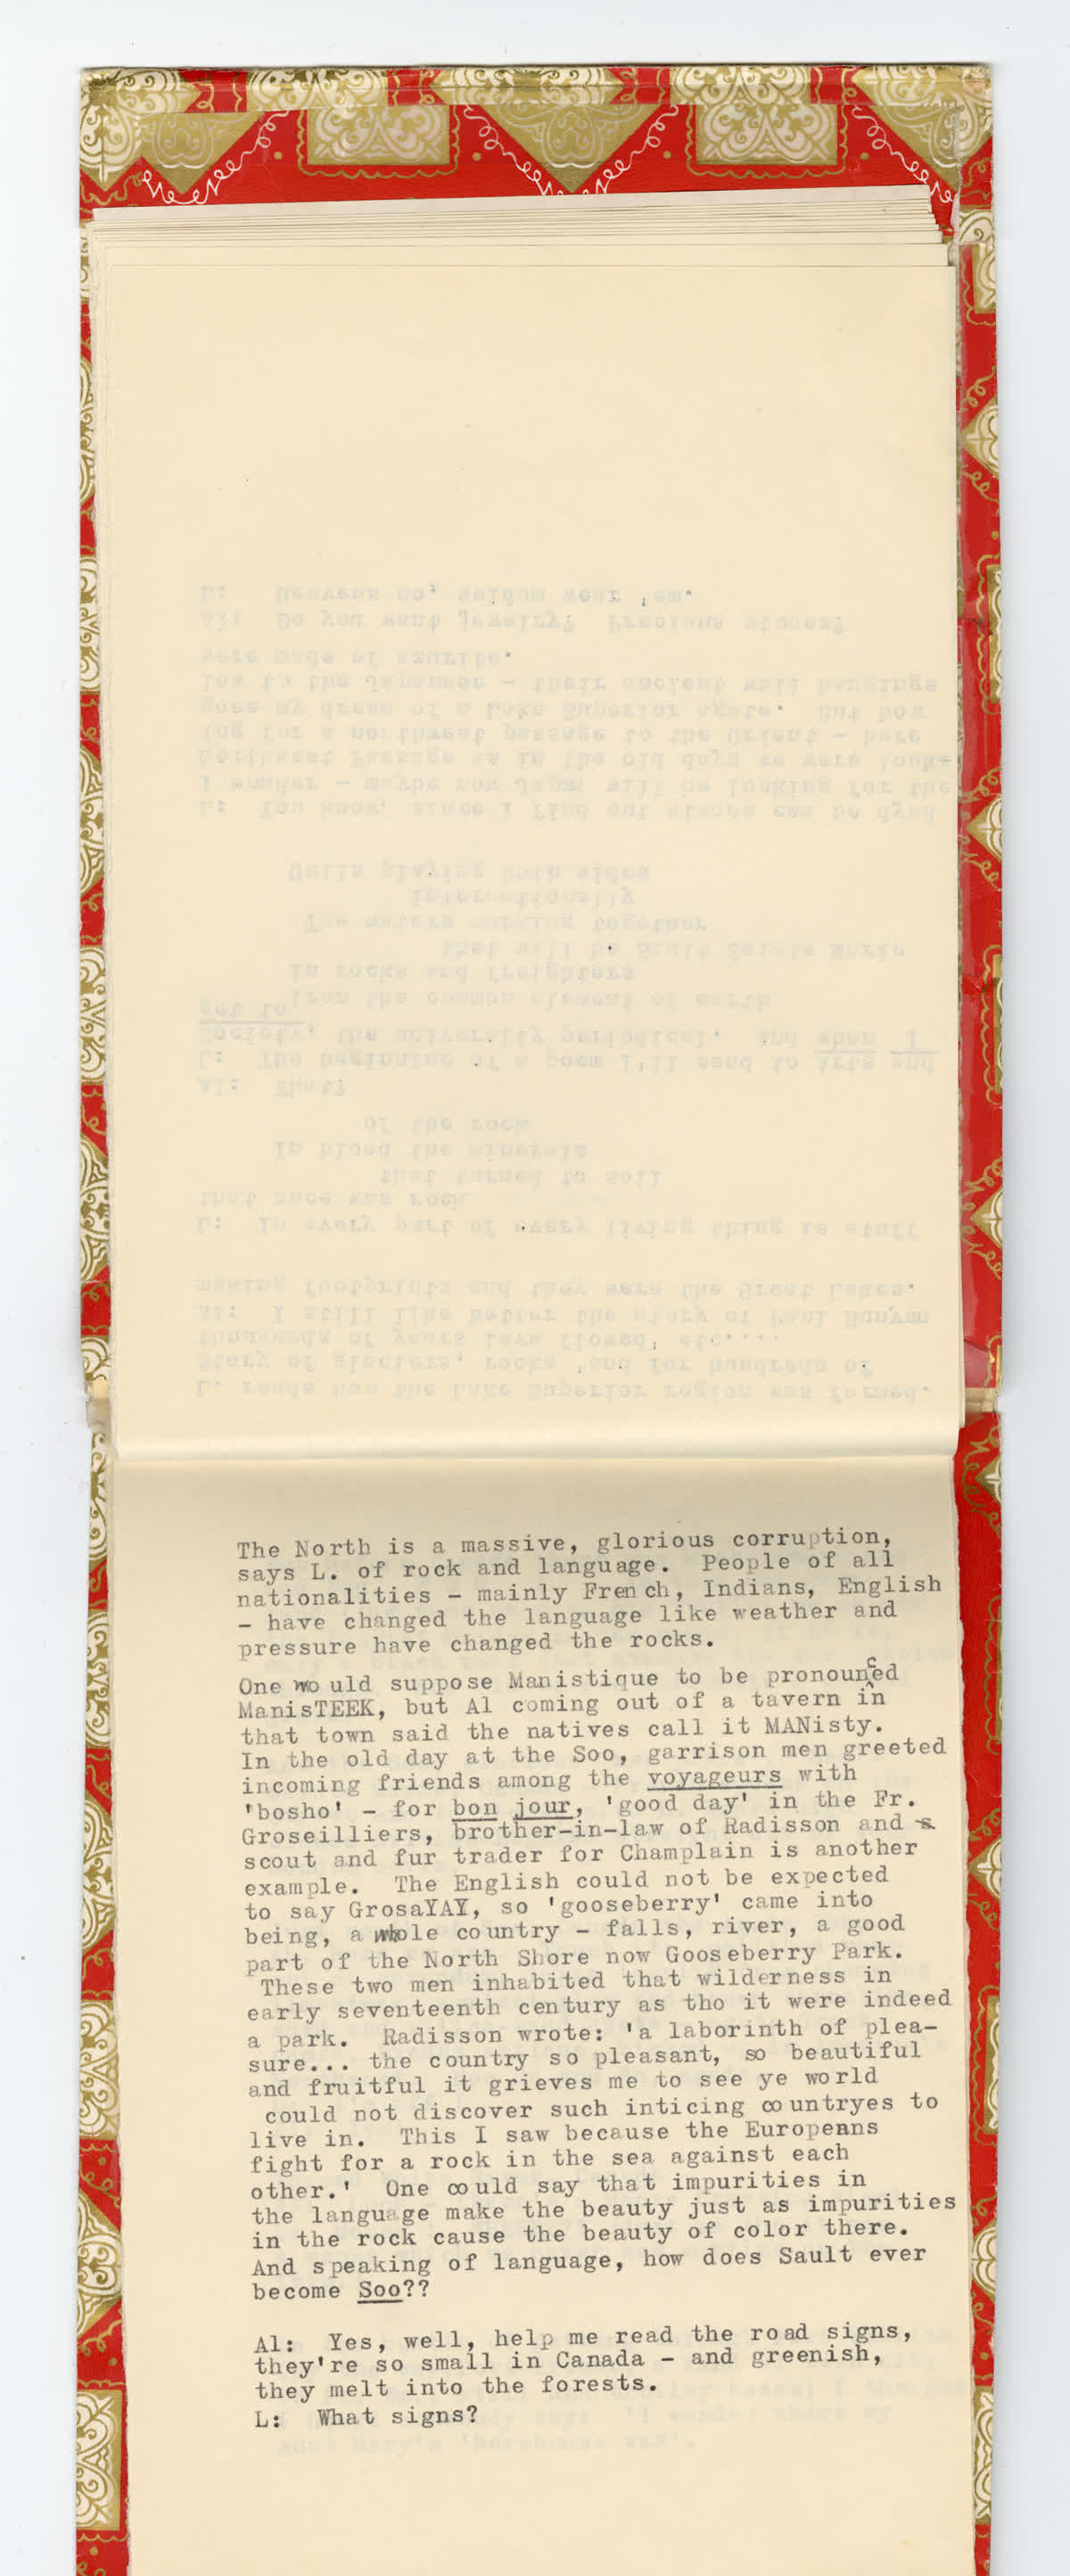 The North is a massive, glorious corruption,
says L. of rock and language.  People of all
nationalities - mainly French, Indians, English
- have changed the language like weather and
pressure have changed the rocks.
One would suppose Manistique to be pronounced
ManisTEEK, but Al coming out of a tavern in
that town said the natives call it MANisty.
In the old day at the Soo, garrison men greeted
incoming friends among the voyageurs with
'bosho' - for bon jour, 'good day' in the Fr.
Groseilliers, brother-in-law of Radisson and
scout and fur trader for Champlain is another
example.  The English could not be expected
to say GrosaYAY, so 'gooseberry' came into
being, a whole country - falls, river, a good
part of the North Shore now Gooseberry Park.
These two men inhabited that wilderness in
early seventeenth century as tho it were indeed
a park.  Radisson wrote: 'a laborinth of plea-
sure... the country so pleasant, so beautiful
and fruitful it grieves me to see ye world
could not discover such inticing countryes to
live in.  This I saw because the Europeans
fight for a rock in the sea against each
other.'  One could say that impurities in
the language make the beauty just as impurities
in the rock cause the beauty of color there.
And speaking of language, how does Sault ever
become Soo??
Al:  Yes, well, help me read the road signs,
they're so small in Canada - and greenish,
they melt into the forests.
L:  What signs?